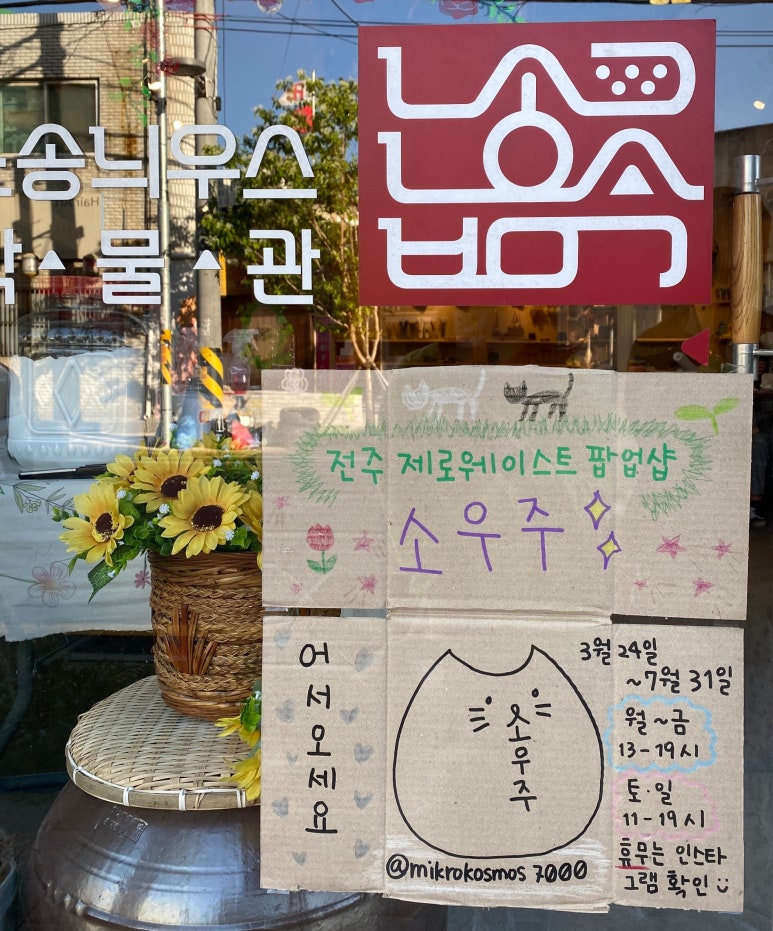 송늬우스
물▲관
전주 제로웨이스트 팝업샵
소우주
어서오세요
소우주
@mikrokosmos7000
3월 24일
~7월 31일
월~금
13-19시
토·일
11-19시
휴무는 인스타
그램 확인